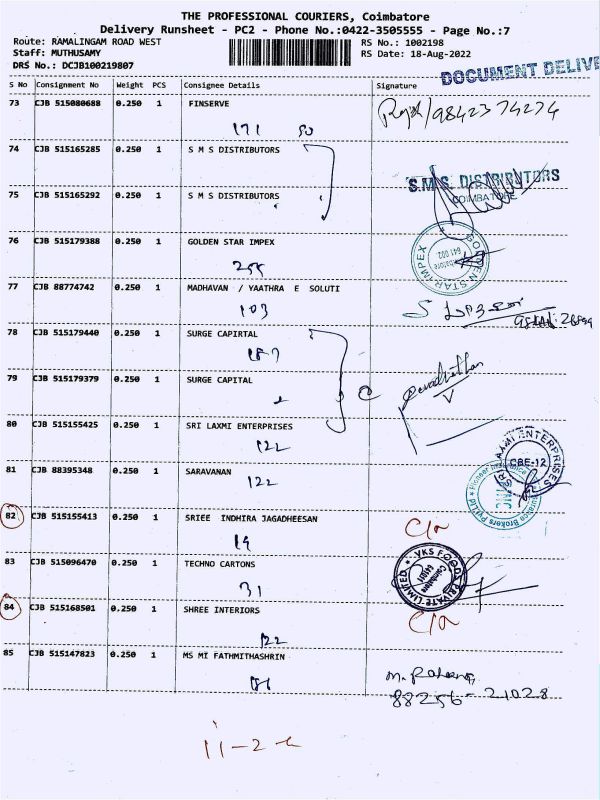 THE PROFESSIONAL COURIERS, Coimbatore
Delivery Runsheet - PC2 - Phone No.:0422-3505555 - Page No.:7
Route: RAMALINGAM ROAD WEST RS No.: 1002198
Staff: MUTHUSAMY RS Date: 18-Aug-2022
DRS No.: DCJB100219807
DOCUMENT DELIVE
S No Consignment No Weight PCS Consignee Details Signature
73 CJB 515080688 0.250 1 FINSERVE
171 50 9842374274
74 CJB 515165285 0.250 1 S M S DISTRIBUTORS
S.M.S. DISTRIBUTORS
COIMBATORE
75 CJB 515165292 0.250 1 S M S DISTRIBUTORS
76 CJB 515179388 0.250 1 GOLDEN STAR IMPEX
GOLDEN STAR IMPEX
641 002
255
77 CJB 88774742 0.250 1 MADHAVAN / YAATHRA E SOLUTI
103
78 CJB 515179440 0.250 1 SURGE CAPIRTAL
187
79 CJB 515179379 0.250 1 SURGE CAPITAL
80 CJB 515155425 0.250 1 SRI LAXMI ENTERPRISES
122
SRI LAXMI ENTERPRISES
CBE-12
81 CJB 88395348 0.250 1 SARAVANAN
122
82 CJB 515155413 0.250 1 SRIEE INDHIRA JAGADHEESAN
19
83 CJB 515096470 0.250 1 TECHNO CARTONS
31
VKS FOODS PRIVATE LIMITED
Coimbatore
84 CJB 515168501 0.250 1 SHREE INTERIORS
122
85 CJB 515147823 0.250 1 MS MI FATHMITHASHRIN
88256-21028